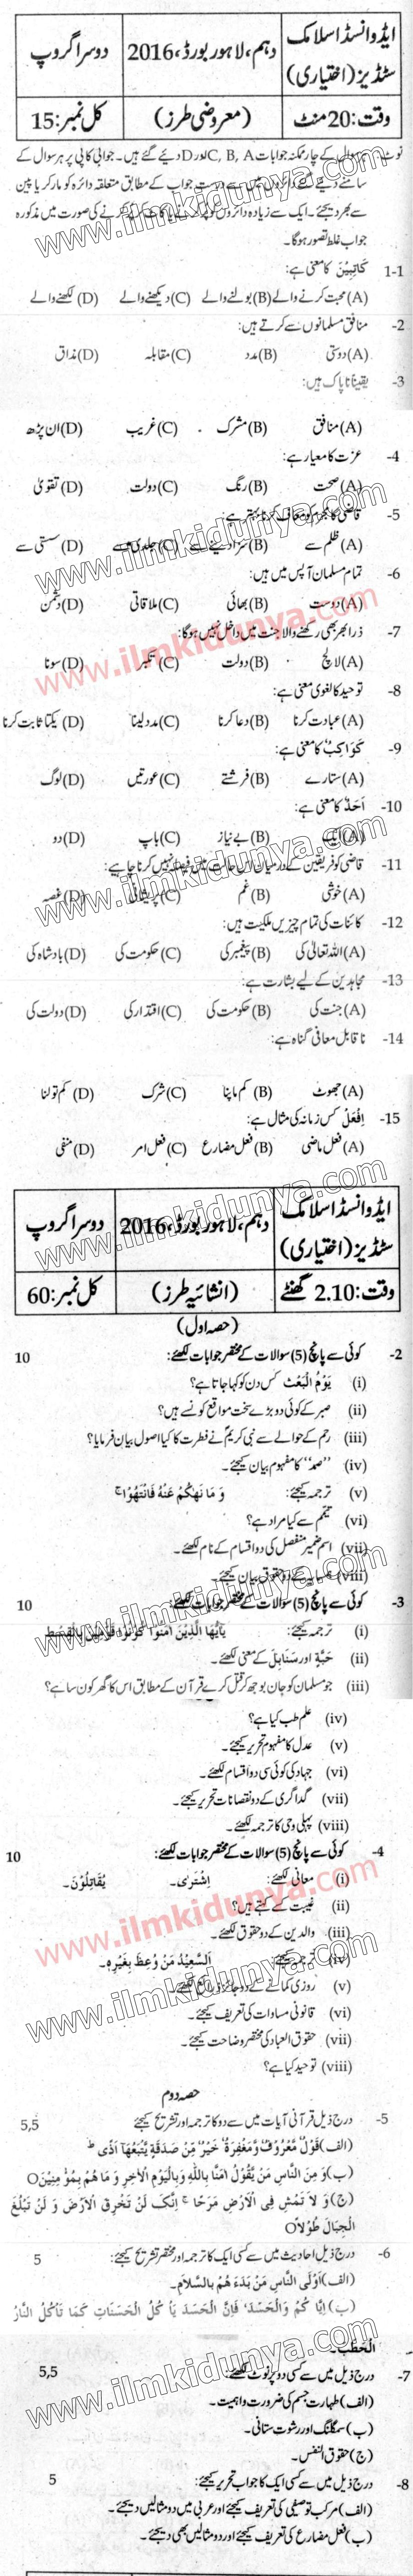 ایڈوانسڈ اسلامک سٹڈیز (اختیاری)
دہم، لاہور بورڈ، 2016
دوسرا گروپ
وقت: 20 منٹ
(معروضی طرز)
کل نمبر: 15
نوٹ: ہر سوال کے چار ممکنہ جوابات C, B, A اور D دیئے گئے ہیں۔ جوابی کاپی پر ہر سوال کے
سامنے دیئے گئے دائروں میں سے درست جواب کے مطابق متعلقہ دائرہ کو مارکر یا پین
سے بھر دیجئے۔ ایک سے زیادہ دائروں کو پُر کرنے یا کاٹ کر پُر کرنے کی صورت میں مذکورہ
جواب غلط تصور ہوگا۔
1-1 کَاتِبِیْنَ کا معنی ہے:
(A) محبت کرنے والے (B) بولنے والے (C) دیکھنے والے (D) لکھنے والے
2- منافق مسلمانوں سے کرتے ہیں:
(A) دوستی (B) مدد (C) مقابلہ (D) مذاق
3- یقیناً ناپاک ہیں:
(A) منافق (B) مشرک (C) غریب (D) ان پڑھ
4- عزت کا معیار ہے:
(A) صحت (B) رنگ (C) دولت (D) تقویٰ
5- قاضی کا مجرم کو معاف کرنا بہتر ہے:
(A) ظلم سے (B) سزا دینے سے (C) جلدی سے (D) سستی سے
6- تمام مسلمان آپس میں ہیں:
(A) دوست (B) بھائی (C) ملاقاتی (D) دشمن
7- ذرا بھر بھی رکھنے والا جنت میں داخل نہیں ہوگا:
(A) لالچ (B) دولت (C) تکبر (D) سونا
8- توحید کا لغوی معنی ہے:
(A) عبادت کرنا (B) دعا کرنا (C) مدد لینا (D) یکتا ثابت کرنا
9- کَوَاکِبُ کا معنی ہے:
(A) ستارے (B) فرشتے (C) عورتیں (D) لوگ
10- اَحَدٌ کا معنی ہے:
(A) ایک (B) بے نیاز (C) باپ (D) دو
11- قاضی کو فریقین کے درمیان اس حالت میں فیصلہ نہیں کرنا چاہیے:
(A) خوشی (B) غم (C) پریشانی (D) غصہ
12- کائنات کی تمام چیزیں ملکیت ہیں:
(A) اللہ تعالیٰ کی (B) پیغمبر کی (C) حکومت کی (D) بادشاہ کی
13- مجاہدین کے لیے بشارت ہے:
(A) جنت کی (B) حکومت کی (C) اقتدار کی (D) دولت کی
14- ناقابل معافی گناہ ہے:
(A) جھوٹ (B) کم ماپنا (C) شرک (D) کم تولنا
15- اِفْعَلْ کس زمانہ کی مثال ہے:
(A) فعل ماضی (B) فعل مضارع (C) فعل امر (D) منفی
ایڈوانسڈ اسلامک سٹڈیز (اختیاری)
دہم، لاہور بورڈ، 2016
دوسرا گروپ
وقت: 2.10 گھنٹے
(انشائیہ طرز)
کل نمبر: 60
(حصہ اول)
2- کوئی سے پانچ (5) سوالات کے مختصر جوابات لکھئے: 10
(i) یَوْمُ الْبَعْث کس دن کو کہا جاتا ہے؟
(ii) صبر کے کوئی دو بڑے سخت مواقع کونسے ہیں؟
(iii) رحم کے حوالے سے نبی کریم نے فطرت کا کیا اصول بیان فرمایا؟
(iv) "صمد" کا مفہوم بیان کیجئے۔
(v) ترجمہ کیجئے: وَ مَا نَهٰكُمْ عَنْهُ فَانْتَهُوْا ج
(vi) تیمّم سے کیا مراد ہے؟
(vii) اسم ضمیر منفصل کی دو اقسام کے نام لکھئے۔
(viii) کے دو حقوق بیان کیجئے۔
3- کوئی سے پانچ (5) سوالات کے مختصر جوابات لکھئے: 10
(i) ترجمہ کیجئے: یٰٓاَیُّهَا الَّذِیْنَ اٰمَنُوْا كُوْنُوْا قَوّٰمِیْنَ بِالْقِسْطِ
(ii) حَبَّةٍ اور سَنَابِلَ کے معنی لکھئے۔
(iii) جو مسلمان کو جان بوجھ کر قتل کرے قرآن کے مطابق اس کا گھر کون سا ہے؟
(iv) علم طب کیا ہے؟
(v) عدل کا مفہوم تحریر کیجئے۔
(vi) جہاد کی کوئی سی دو اقسام لکھئے۔
(vii) گداگری کے دو نقصانات تحریر کیجئے۔
(viii) پہلی وحی کا ترجمہ لکھئے۔
4- کوئی سے پانچ (5) سوالات کے مختصر جوابات لکھئے: 10
(i) معانی لکھئے: اِشْتَرٰی۔ یُقَاتِلُوْنَ۔
(ii) غیبت کسے کہتے ہیں؟
(iii) والدین کے دو حقوق لکھئے۔
(iv) ترجمہ کیجئے: اَلسَّعِیْدُ مَنْ وُعِظَ بِغَیْرِهٖ۔
(v) روزی کمانے کے دو جائز ذرائع لکھئے۔
(vi) قانونی مساوات کی تعریف کیجئے۔
(vii) حقوق العباد کی مختصر وضاحت کیجئے۔
(viii) توحید کیا ہے؟
حصہ دوم
5- درج ذیل قرآنی آیات میں سے دو کا ترجمہ اور تشریح کیجئے: 5,5
(الف) قَوْلٌ مَّعْرُوْفٌ وَّمَغْفِرَةٌ خَیْرٌ مِّنْ صَدَقَةٍ یَّتْبَعُهَاۤ اَذًی ط
(ب) وَ مِنَ النَّاسِ مَنْ یَّقُوْلُ اٰمَنَّا بِاللّٰهِ وَبِالْیَوْمِ الْاٰخِرِ وَ مَا هُمْ بِمُؤْمِنِیْنَ O
(ج) وَ لَا تَمْشِ فِی الْاَرْضِ مَرَحًا ج اِنَّكَ لَنْ تَخْرِقَ الْاَرْضَ وَ لَنْ تَبْلُغَ
الْجِبَالَ طُوْلًا O
6- درج ذیل احادیث میں سے کسی ایک کا ترجمہ اور مختصر تشریح کیجئے: 5
(الف) اَوْلَی النَّاسِ مَنْ بَدَءَهُمْ بِالسَّلَامِ۔
(ب) اِیَّا كُمْ وَالْحَسَدَ، فَاِنَّ الْحَسَدَ یَاْ كُلُ الْحَسَنَاتِ كَمَا تَاْكُلُ النَّارُ
الْحَطَبَ۔
7- درج ذیل میں سے کسی دو پر نوٹ لکھئے: 5,5
(الف) طہارت جسم کی ضرورت و اہمیت۔
(ب) سمگلنگ اور رشوت ستانی۔
(ج) حقوق النفس۔
8- درج ذیل میں سے کسی ایک کا جواب تحریر کیجئے: 5
(الف) مرکب توصیفی کی تعریف کیجئے اور عربی میں دو مثالیں دیجئے۔
(ب) فعل مضارع کی تعریف کیجئے اور دو مثالیں بھی دیجئے۔
www.ilmkidunya.com